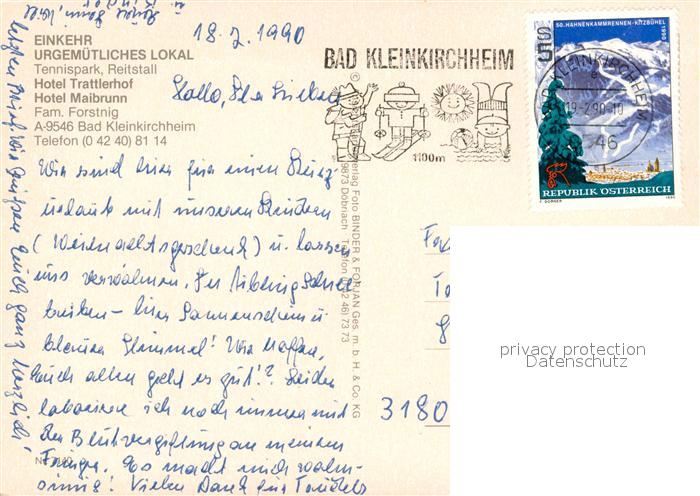 EINKEHR
URGEMÜTLICHES LOKAL
Tennispark, Reitstall
Hotel Trattlerhof
Hotel Maibrunn
Fam. Forstnig
A-9546 Bad Kleinkirchheim
Telefon (0 42 40) 81 14
18. 2. 1990
Hallo, Ihr Lieben
Wir sind hier für einen Kurz
urlaub mit unseren Kindern
(Weihnachtsgeschenk) u. lassen
uns verwöhnen. In
treiben – hier Sonnenschein u
blauer Himmel! Wir hoffen,
Euch allen geht es gut!? Leider
laboriere ich noch immer mit
der Blutvergiftung an meinem
Finger. Es macht mich wahn-
sinnig! Vielen Dank für
Brief. Wir grüßen Euch ganz herzlich
BAD KLEINKIRCHHEIM
1100m
KLEINKIRCHHEIM
19-2.90-10
46
50. HAHNENKAMMRENNEN-KITZBÜHEL
1990
S 5
REPUBLIK ÖSTERREICH
Verlag Foto BINDER & FORJAN Ges. m. b. H. & Co. KG
9873 Döbriach Telefon (0 42 46) 73 73
3180
privacy protection
Datenschutz